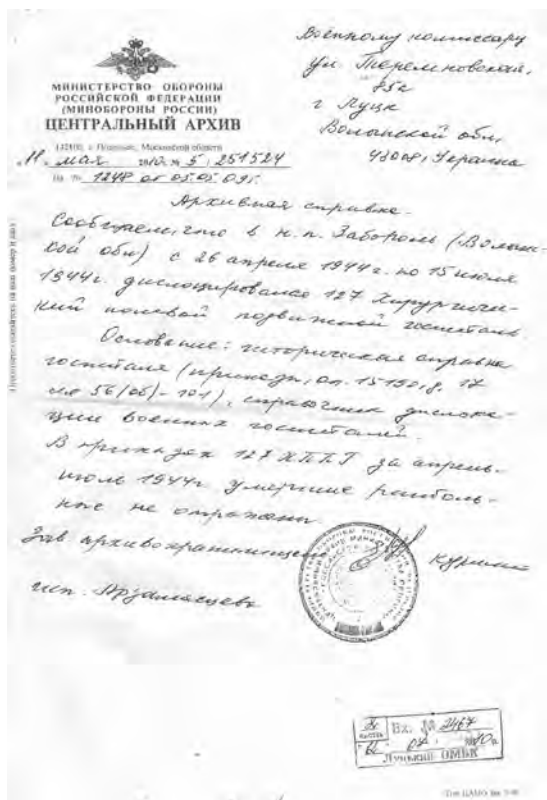 МИНИСТЕРСТВО ОБОРОНЫ
РОССИЙСКОЙ ФЕДЕРАЦИИ
(МИНОБОРОНЫ РОССИИ)
ЦЕНТРАЛЬНЫЙ АРХИВ
142100, г. Подольск, Московской области
"11" мая 2010г. № 5/251524
На № 1248 от 05.05.09г.
Военному комиссару
ул. Теремновская,
85а
г Луцк
Волынской обл,
43008, Украина
Архивная справка.
Сообщаем, что в н.п. Забороль (Волын-
ской обл) с 26 апреля 1944г. по 15 июля
1944г. дислоцировался 127 Хирургиче-
ский полевой подвижной госпиталь.
Основание: историческая справка
госпиталя (оп. 15190, д. 17
56/об)-101), справочник дислока-
ции военных госпиталей.
В приказах 127 ХППГ за апрель-
июль 1944г умершие раноболь-
ные не отражены.
Зав архивохранилищем
исп. Арзамасцева
Вх. № 2467
07. 2010р.
Луцький ОМВК